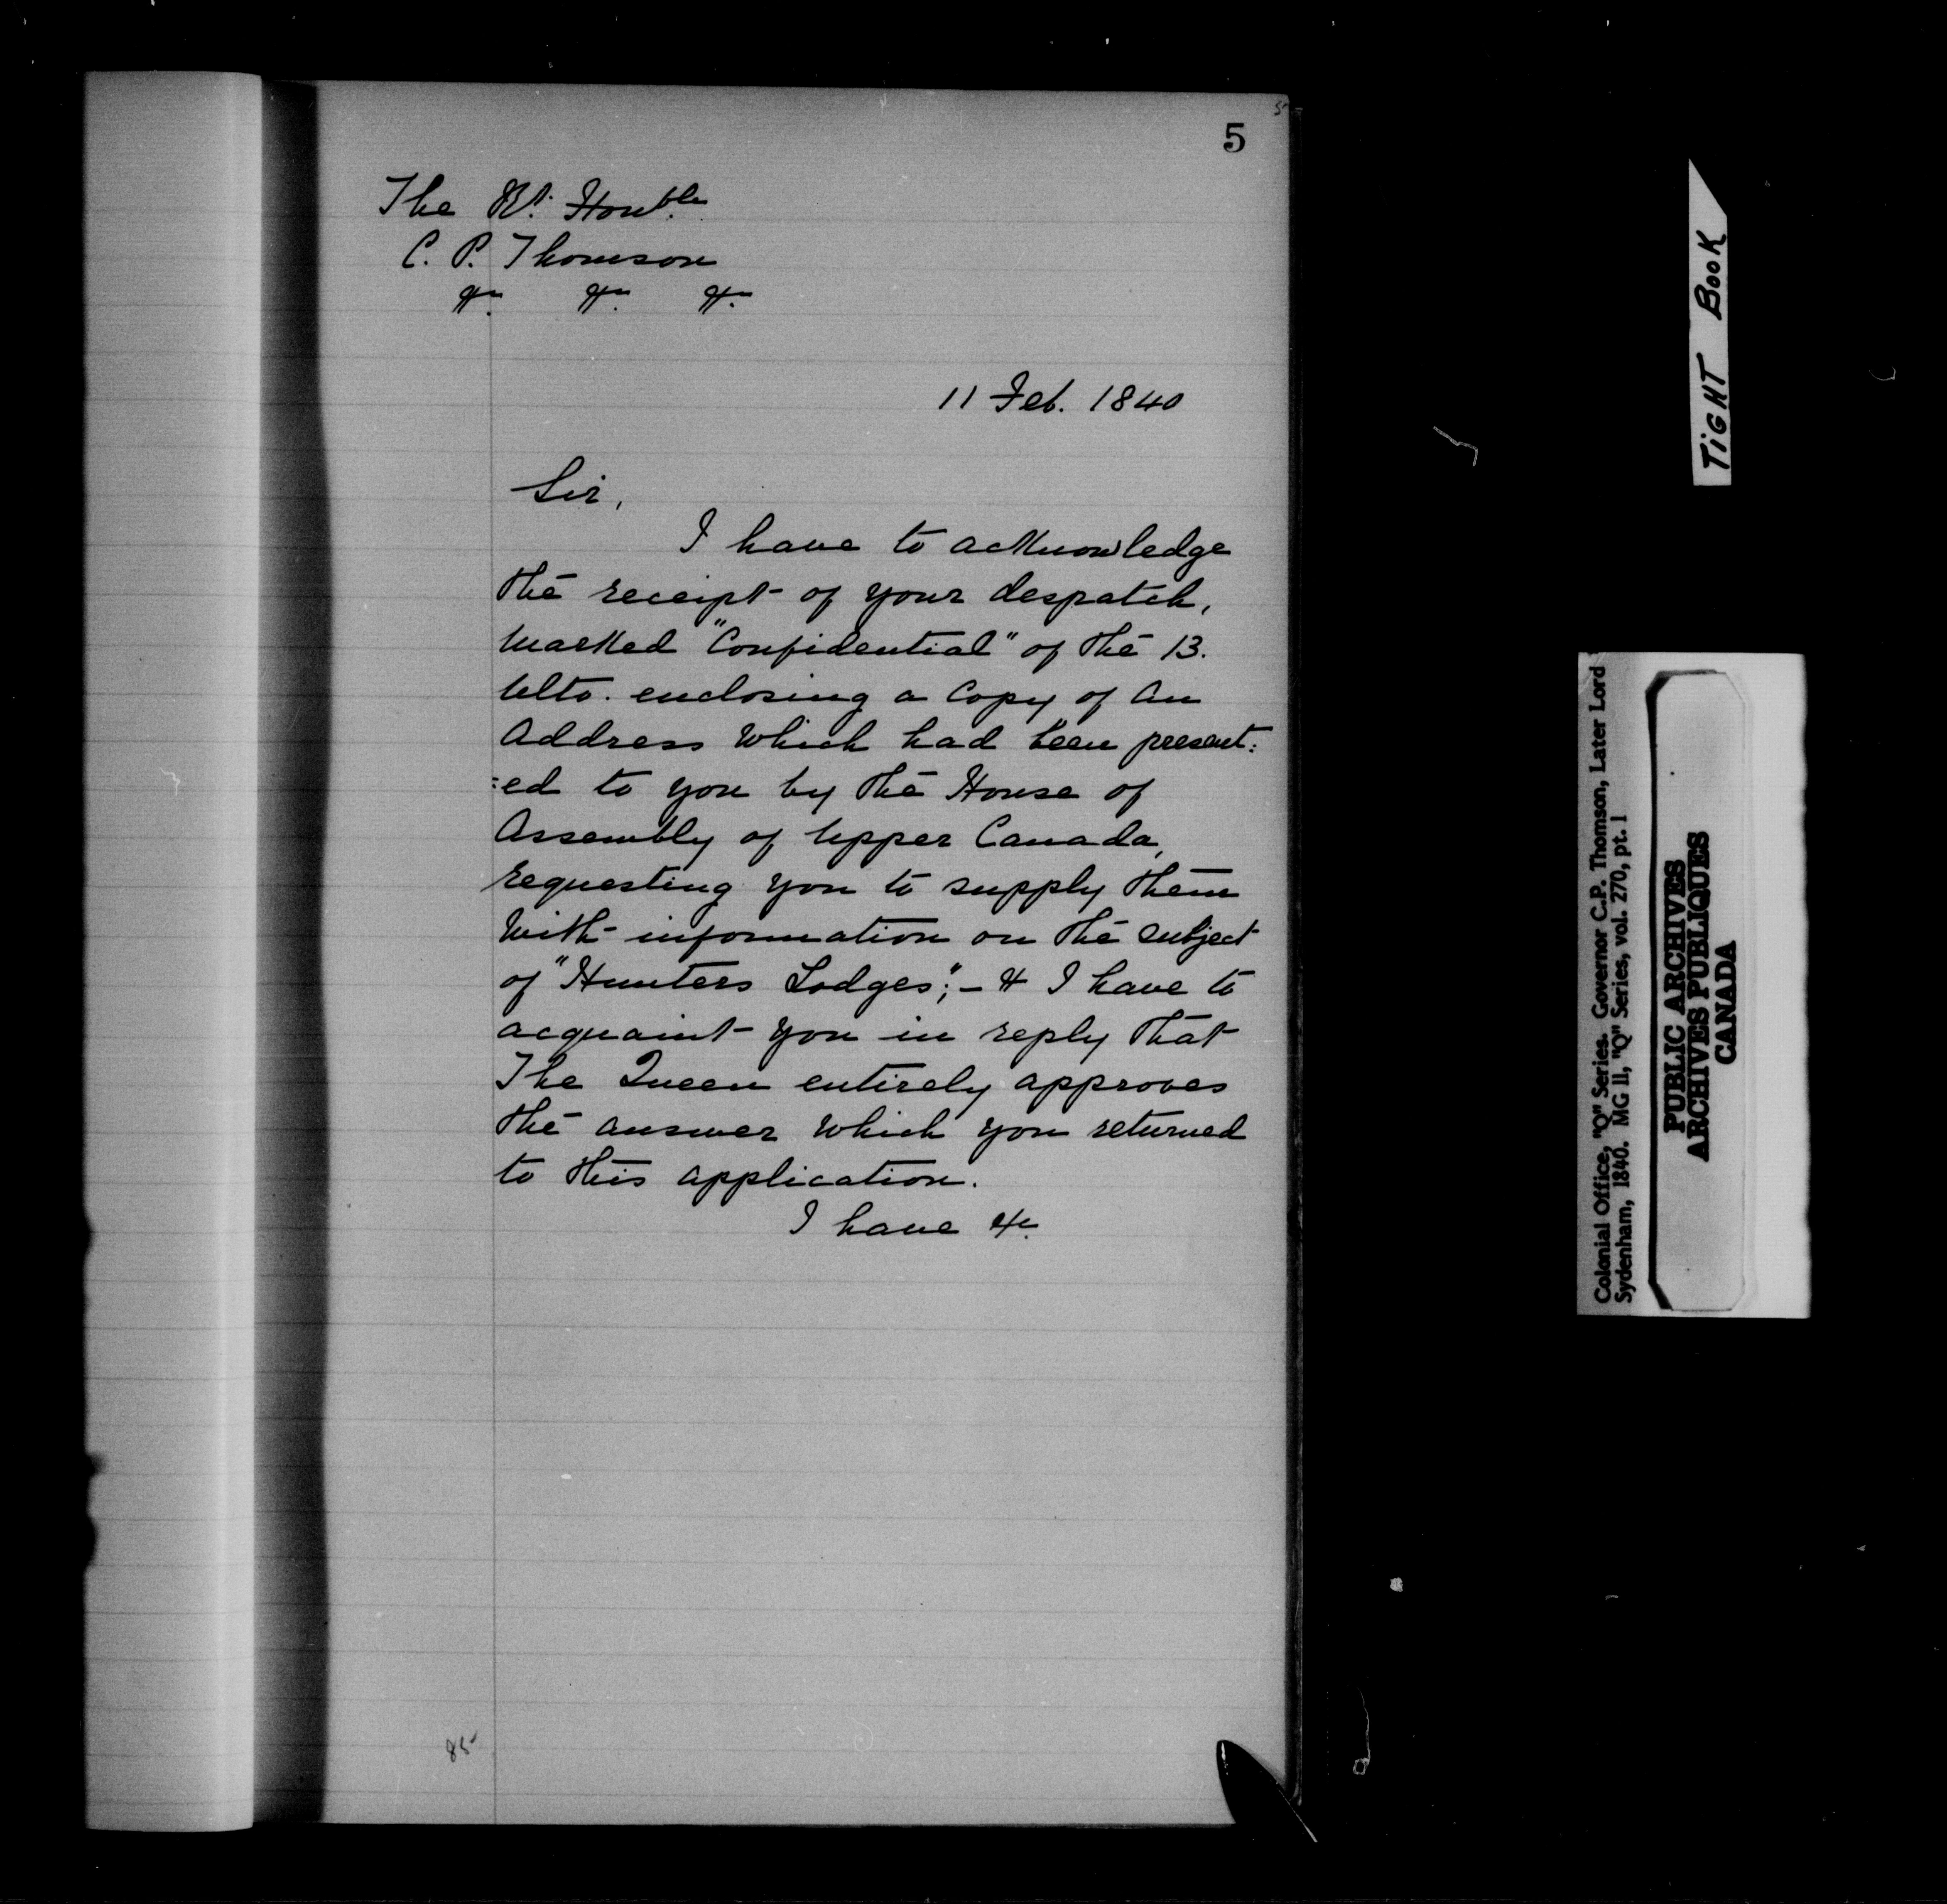 5
5
The Rt. Honble.
C. P. Thomson
&c. &c. &c.
11 Feb. 1840
Sir,
I have to acknowledge
the receipt of your despatch,
marked "Confidential" of the 13.
Ulto. enclosing a Copy of an
Address which had been present:
:ed to you by the House of
Assembly of Upper Canada,
requesting you to supply them
with information on the subject
of "Hunters Lodges;" - & I have to
acquaint you in reply that
The Queen entirely approves
the answer which you returned
to this application.
I have &c.
85
TIGHT BOOK
Colonial Office, "Q" Series. Governor C.P. Thomson, Later Lord
Sydenham, 1840. MG 11, "Q" Series, vol. 270, pt. 1
PUBLIC ARCHIVES
ARCHIVES PUBLIQUES
CANADA